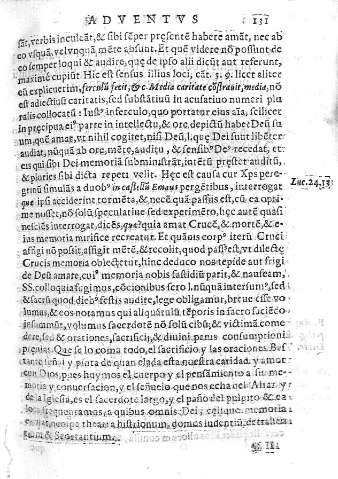 ADVENTVS 131
sãt, verbis inculcãt, & sibi sẽper presentẽ habere amãt, nec ab
eo vsquã, velvnquã mẽte absunt. Et quẽ videre nõ possunt de
eo semper loqui & audire, quę de ipso alii dicũt aut referunt,
maximè cupiũt Hic est sensus illius loci, cãt. 3. 9. licet aliter
eũ explicuerim, ferculũ fecit, & c. Media caritate cõstrauit, media, nõ
est adiectiuũ caritatis, sed substãtiuũ in accusatiuo numeri plu
ralis collocatũ: Ius° inferculo, quo portatur eius aĩa, scilicet
in pręcipua ei° parte in intellectu, & ore, depictũ habet Deũ su
um, quẽ amat, vt nihil cogitet, nisi Deũ,
audiat, nũquã ab ore, mẽte, auditu, & sensib° De° recedat, et
eius qui sibi Dei memoriã subministrãt, interũ prester auditũ,
& pluries sibi dicta repeti velit. Hęc est causa cur Xps pere-
grinũ simulãs a duob° in castellũ Emaus pergẽtibus, interrogat
quę ipsi acciderint tormẽta, & necẽ quã passus est, cũ ea opti-
me nosset, nõ solũ speculatiuę sed experimẽto, hęc autẽ quasi
nesciẽs interrogat, dicẽs, quę? quia amat Crucẽ, & mortẽ, & e-
ius memoria mirifice recreatur. Et quãuis corp° interũ Cruci
affigi nõ possit, affigit mẽtẽ, & recolit, quod pass° est, vt dilectę
Crucis memoria oblectetur, hinc deduco nos tepide aut frigi
de Deũ amare, cui° memoria nobis fastidiũ parit, & nauseam,
SS. colloquia fugimus, cõcionibus fero l. nũquã intersum°, sed
& sacrũ quod dieb° festis audire, lege obligamur, breue esse vo
lumus, & eos notamus qui aliquãtulũ tẽporis in sacro faciẽdo
insumũt, volumus sacerdotẽ nõ solũ cibũ, & victimã come
dere, sed & orationes, sacrificiũ, & diuini penus consumptioni
Que se lo coma todo, el sacrificio y las oraciones. Bas
tante señal y pinta de quan elada esta nuestra caridad y amor
con Dios, pues huymos el cuerpo y el pensamiento a su me-
moria y conuersacion, y el señuelo que nos echa nel Altar y
de la Iglesia, es el sacerdote largo, y el paño del pulpito & ea
loca frequentamus, a quibus omnis Dei, celique memoria
theatra histrionum, domos indentiũ, detrahen
tium & Sectantium.
Luc. 24, 13